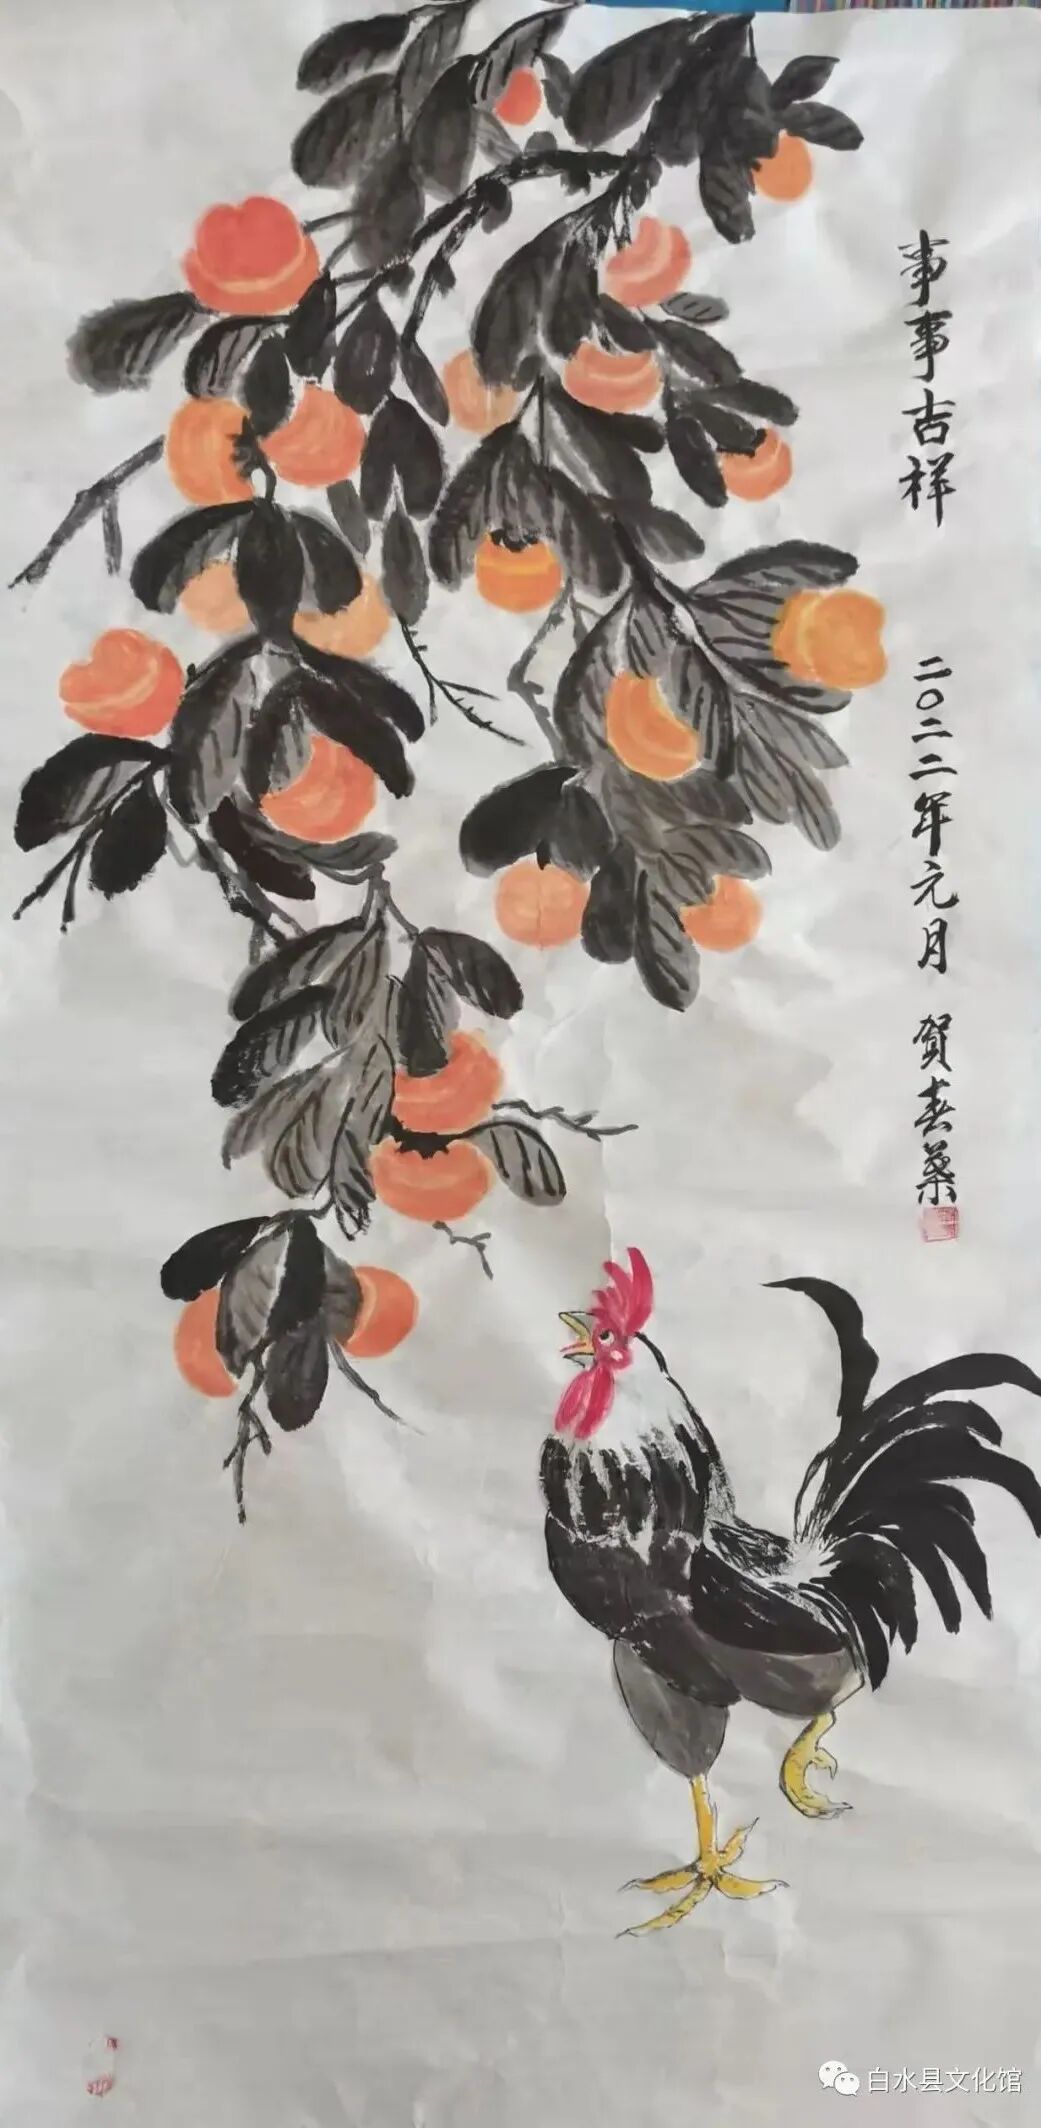 事事吉祥
二〇二二年元月 贺春葉
白水县文化馆